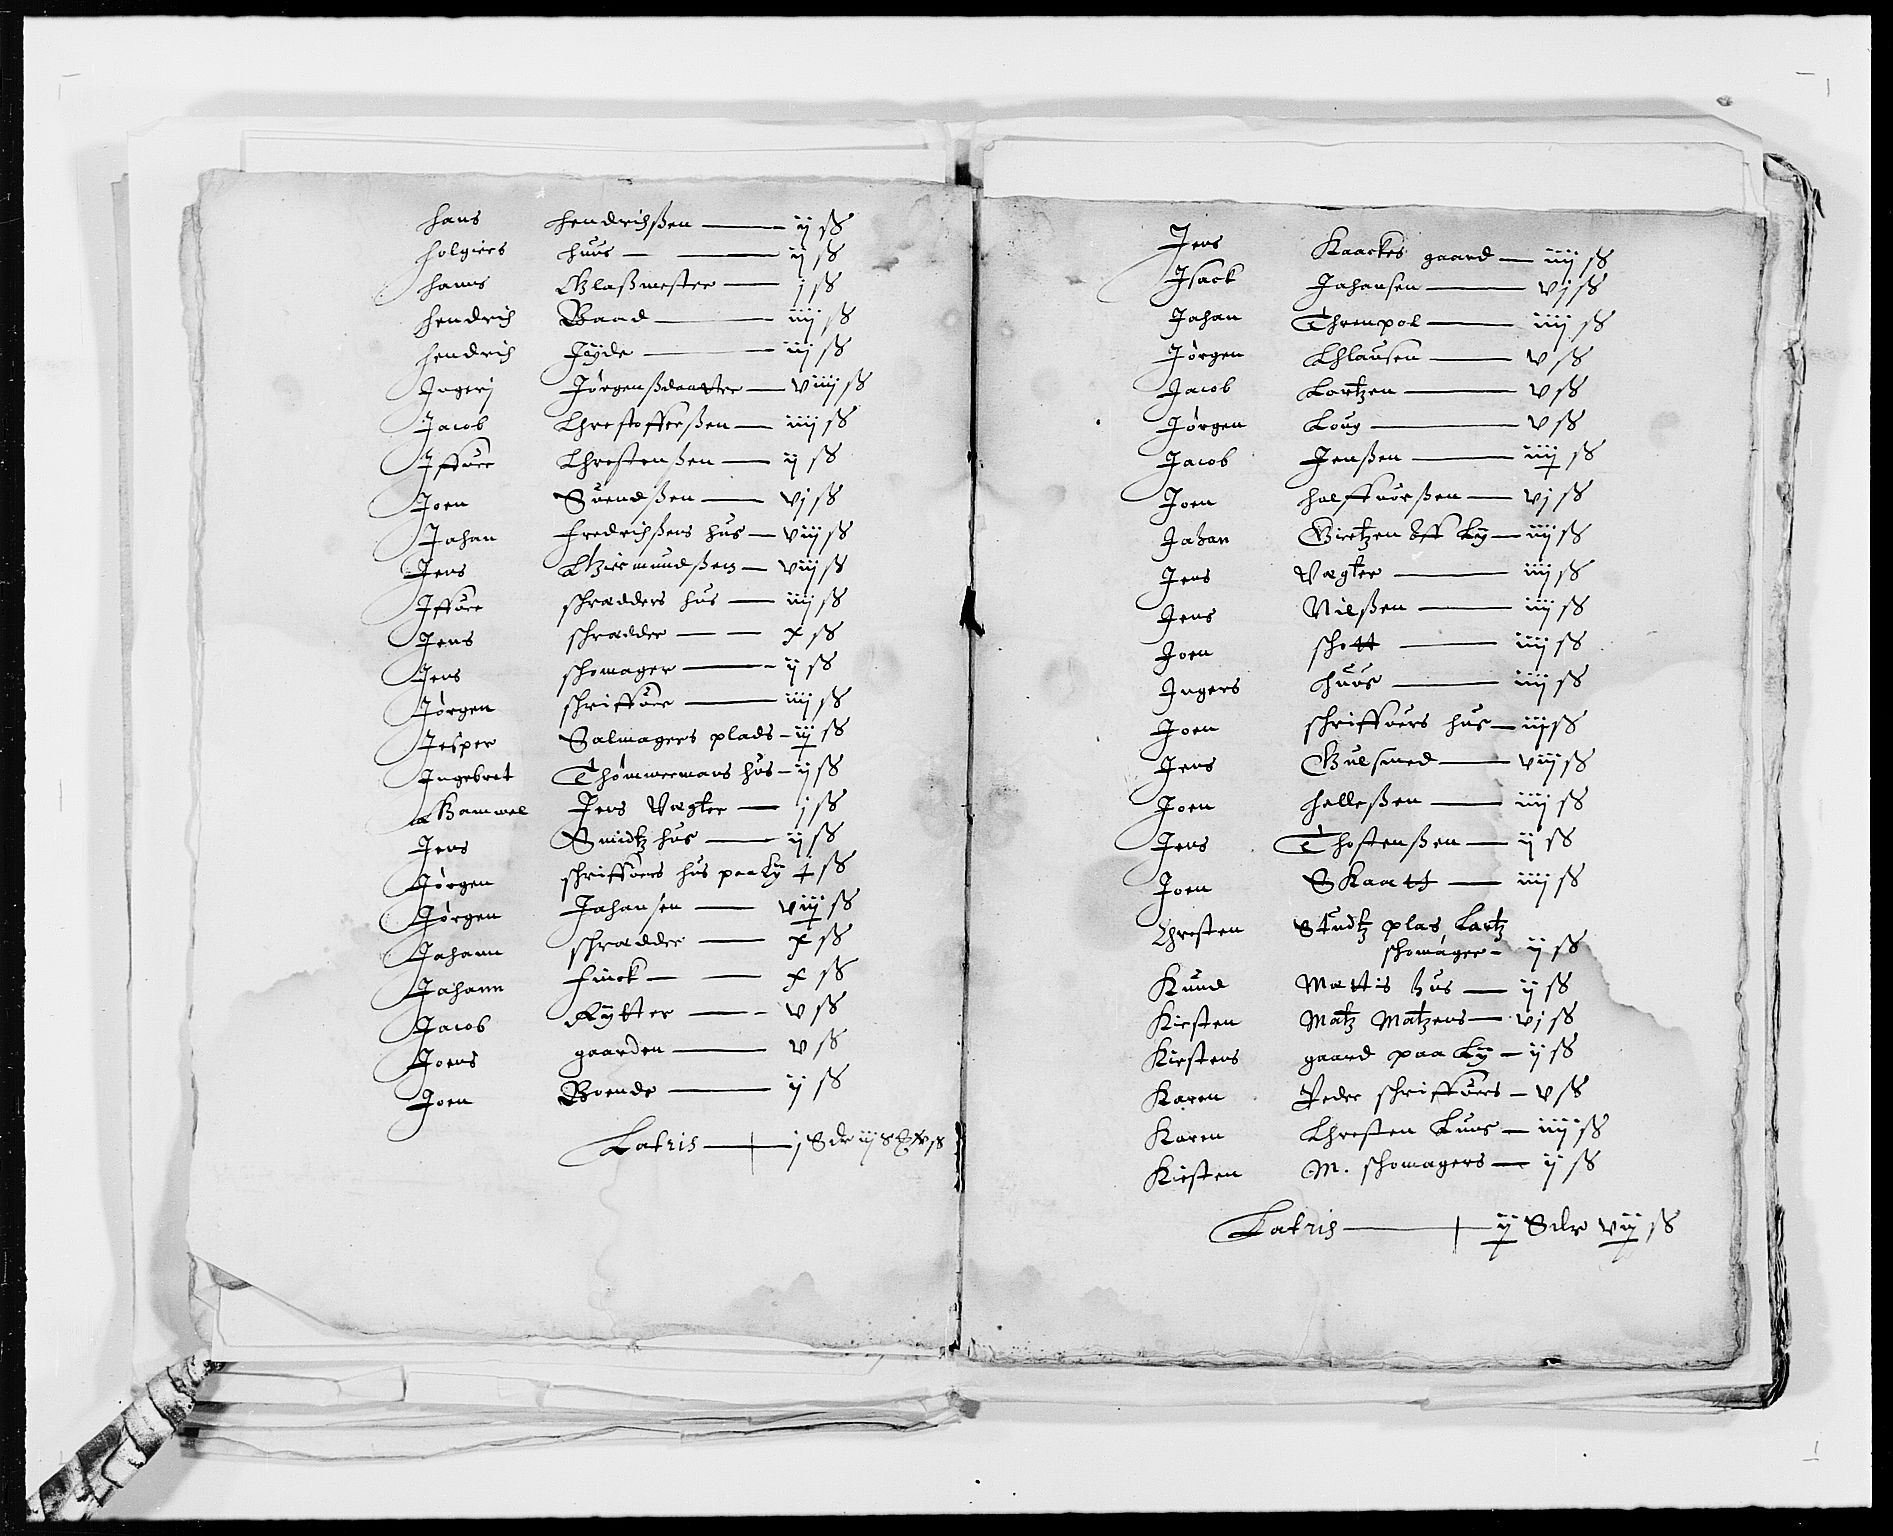 Hans Hendrichßen — ij sß
Holgiers huus — ij sß
Hanns Glaßmester — j sß
Hendrich Baad — iiij sß
Hendrich Jyde — iiij sß
Ingerj Jørgenßdaatter — viiij sß
Jacob Christofferßen — iiij sß
Iffuer Christenßen — ij sß
Joen Suendßen — vj sß
Jahan Fredrichßens hus — viij sß
Jens — viij sß
Iffuer schrædders hus — iiij sß
Jens schrædder — x sß
Jens schomager — ij sß
Jørgen schriffuer — iiij sß
Jesper Salmagers plads — iij sß
Ingebret Thømmermans hus — ij sß
Gammel Jens Vegter — j sß
Jens Smidtz hus — ij sß
Jørgen schriffuers hus paa Ly — j sß
Jørgen Jahansen — viij sß
Jahann schrædder — x sß
Jahann Finck — x sß
Jacob Rytter — v sß
Joens gaarden — v sß
Joen Boende — ij sß
Latris — j Sdr
Jens Kaackes gaard — iiij sß
Isack Jahansen — vj sß
Jahan Threnpol — iiij sß
Jørgen Chlausen — v sß
Jacob Lartzen — v sß
Jørgen Loug — v sß
Jacob Jenßen — iiij sß
Joen Halffuorßen — vj sß
Jahan Giertzen Ly — iiij sß
Jens Vegter — iiij sß
Jens Nilßen — iiij sß
Joen schott — iiij sß
Ingers huus — iiij sß
Joen schriffuers hus — iij sß
Jens Gulsmed — viij sß
Joen Helleßen — iiij sß
Jens Thostenßen — ij sß
Joen Skaatt — iiij sß
Christen Studtz plas, Lartz
schomager — ij sß
Kund Mattis hus — ij sß
Kirsten Matz Matzens — vj sß
Kirstens gaard paa Ly — ij sß
Karen Peder schriffuers — v sß
Karen Christen Luns — iiij sß
Kirsten M. schomagers — ij sß
Latris — ij Sdr vij sß